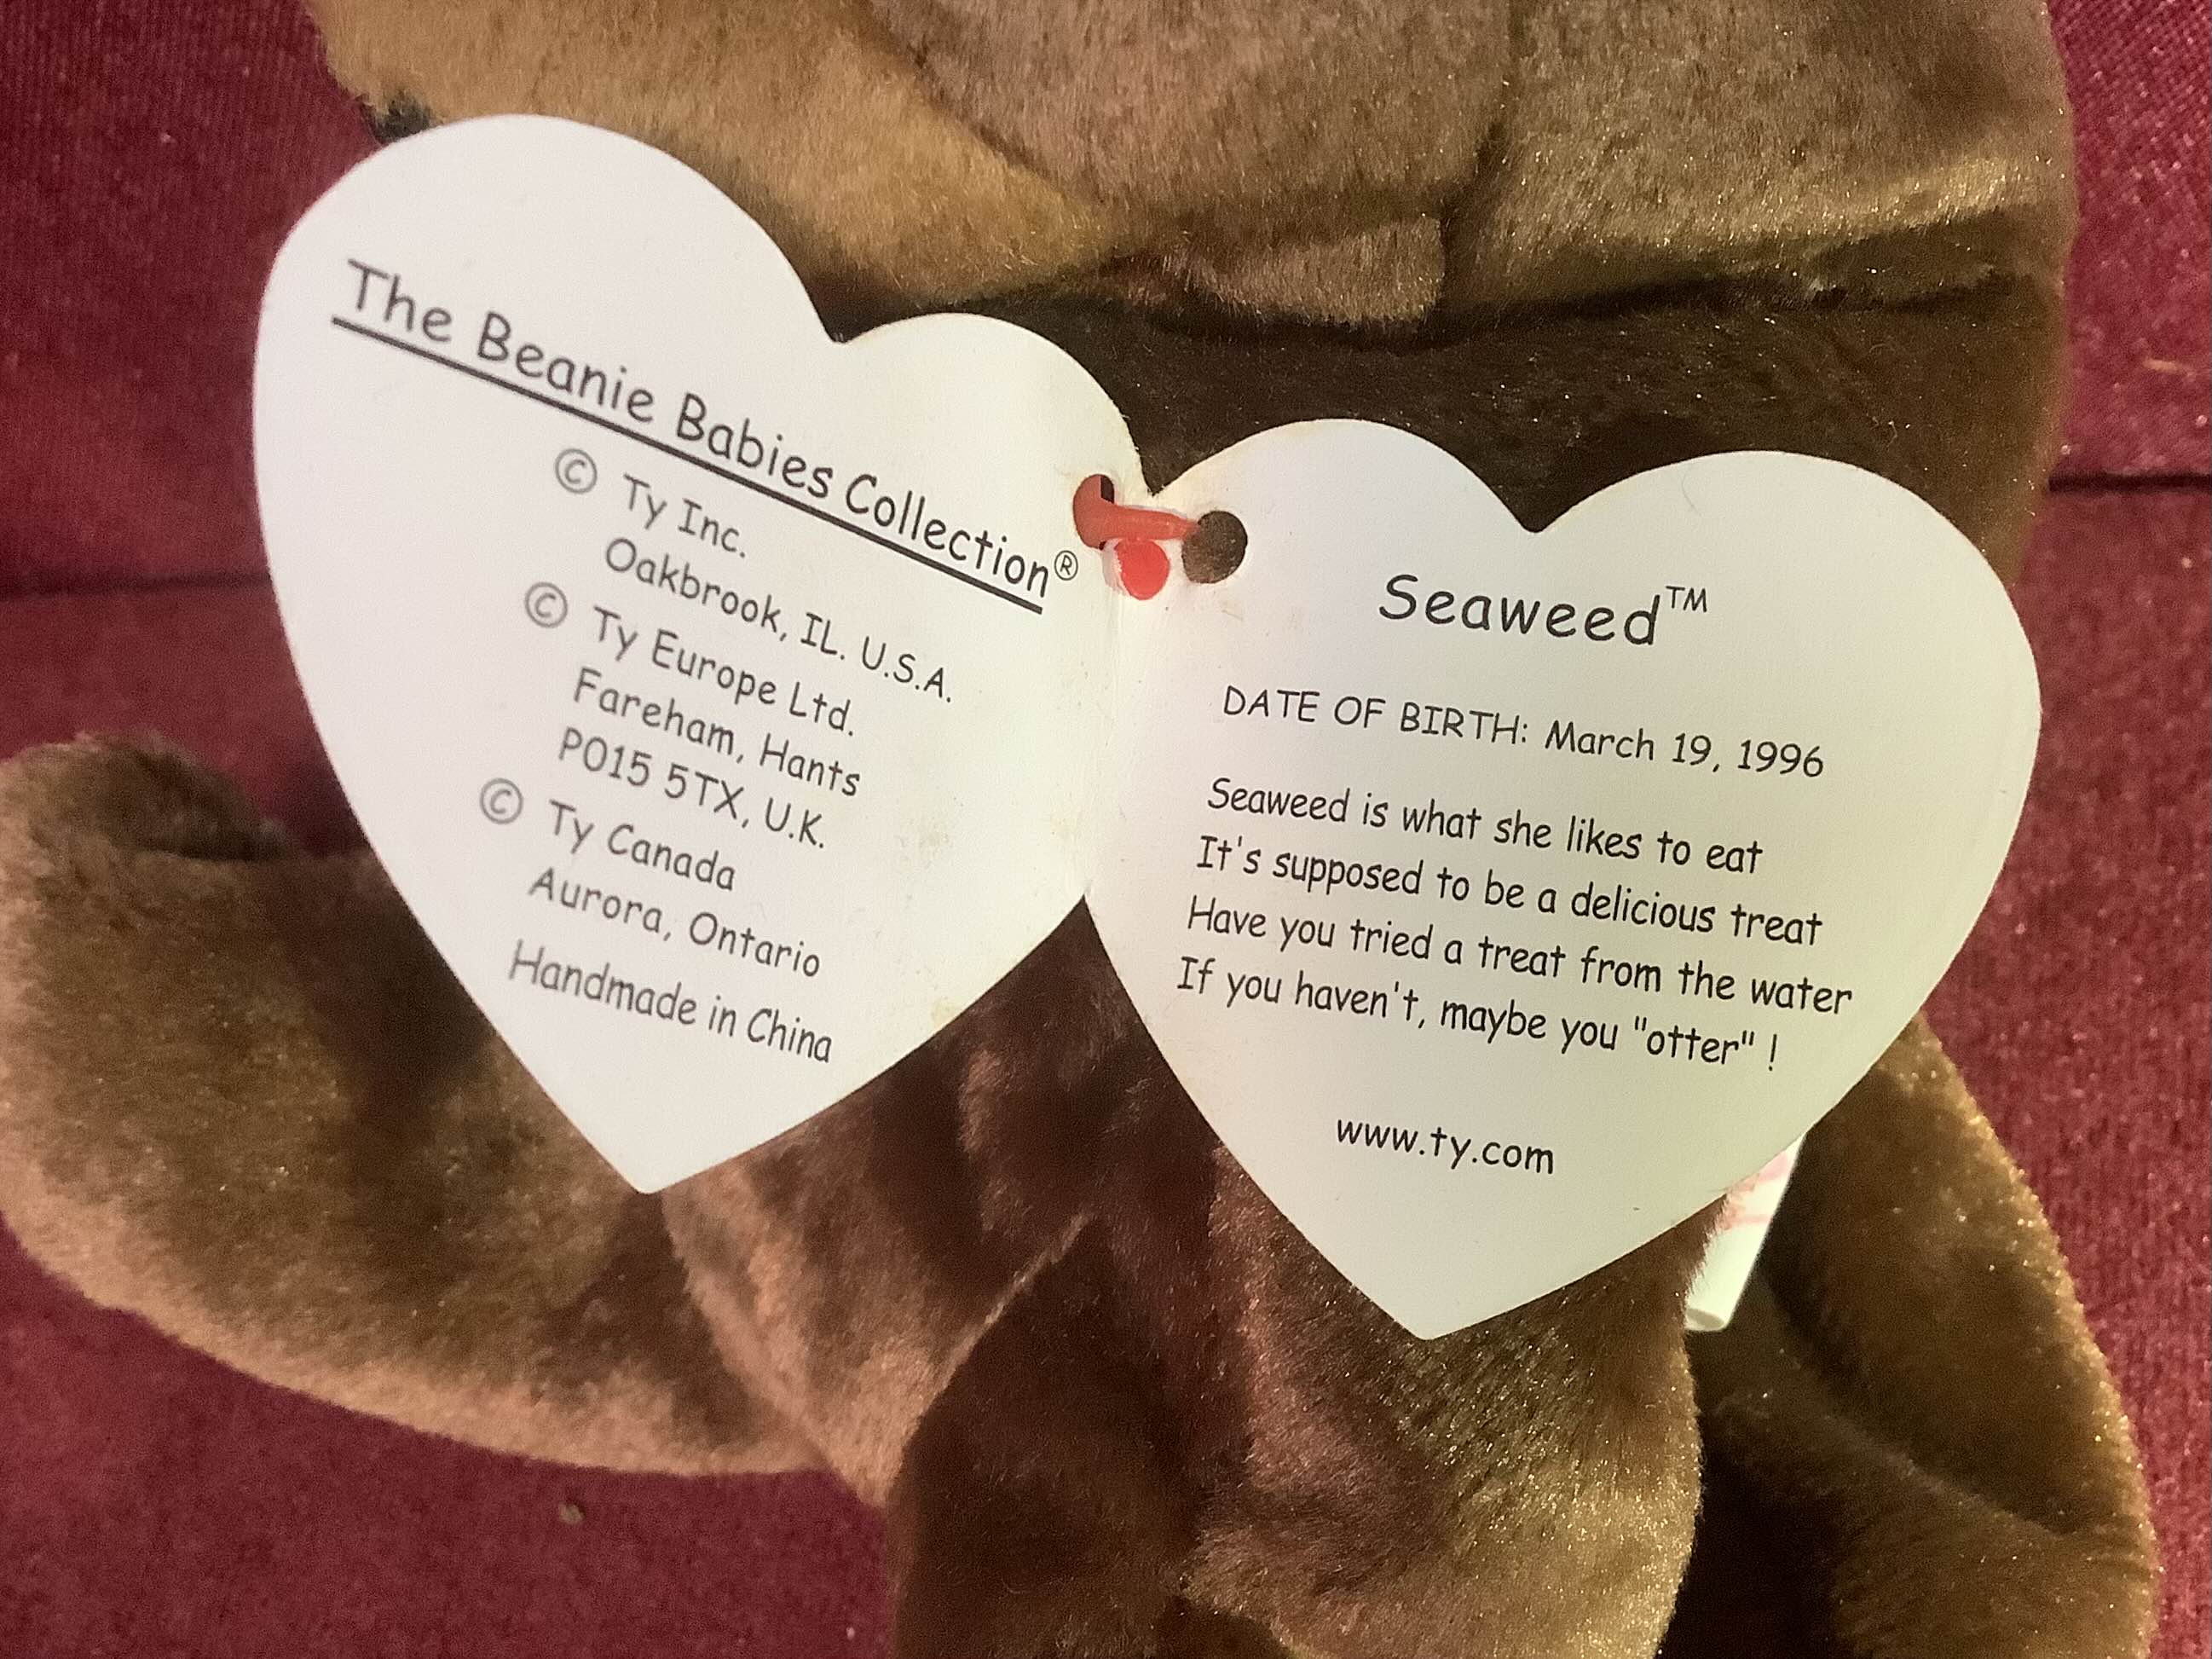 The Beanie Babies Collection®
© Ty Inc.
Oakbrook, IL. U.S.A.
© Ty Europe Ltd.
Fareham, Hants
PO15 5TX, U.K.
© Ty Canada
Aurora, Ontario
Handmade in China
Seaweed™
DATE OF BIRTH: March 19, 1996
Seaweed is what she likes to eat
It's supposed to be a delicious treat
Have you tried a treat from the water
If you haven't, maybe you "otter" !
www.ty.com